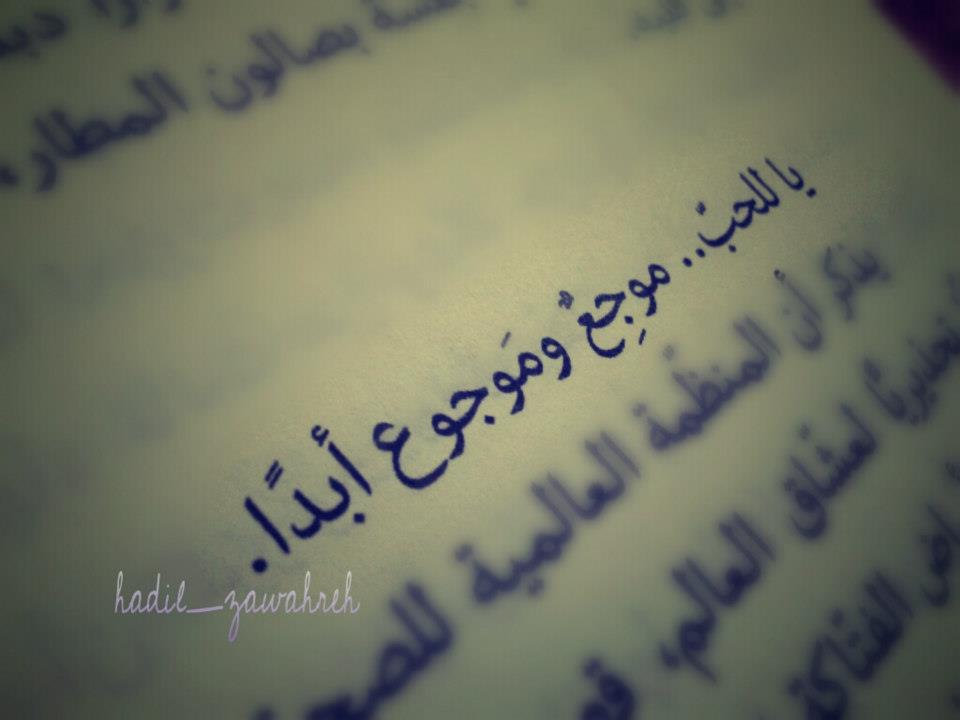 بصالون المطار،
يا للحبّ.. موجِعٌ ومَوجوع أبدًا.
يذكر أن المنظمة العالمية للصحة
تحذيريًا لعشاق العالم،
الفتاكة
hadil_zawahreh